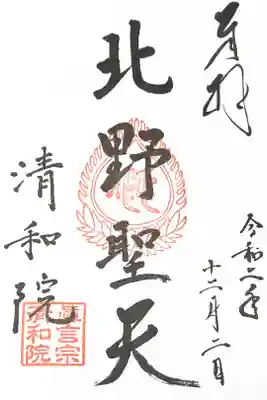 奉拝
令和二年
十二月二日
北野聖天
清和院
真言宗
清和院